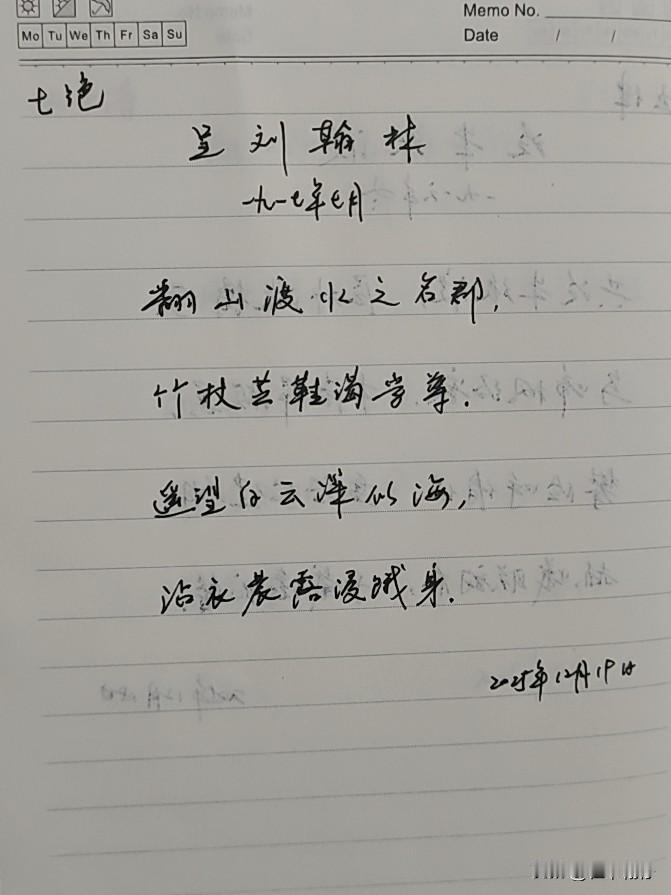 Mo Tu We Th Fr Sa Su
Memo No.
Date / /
七绝
呈刘翰林
一九一七年七月
翻山渡水之名郡,
竹杖芒鞋谒学尊.
遥望白云浑似海,
沾衣晨露浸饿身.
2025年12月19日